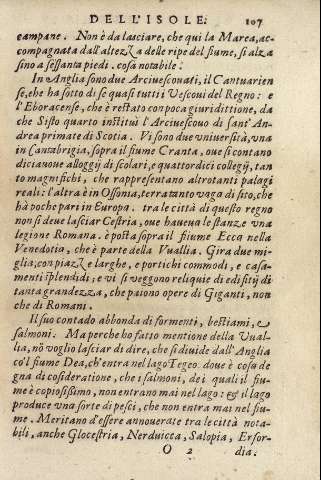 DELL'ISOLE. 107
campane. Non è da lasciare, che qui la Marea, ac-
compagnata dall'altezza delle ripe del fiume, si alza
sino a sessanta piedi. cosa notabile.
In Anglia sono due Arciuescouati, il Cantuarien
se, che ha sotto di se quasi tutti i Vescoui del Regno: e
l'Eboracense, che è restato con poca giuridittione, da
che Sisto quarto instituì l'Arciuescouo di sant' An-
drea primate di Scotia. Vi sono due vniuersità, vna
in Cantabrigia, sopra il fiume Cranta, oue si contano
dicianoue alloggij di scolari, e quattordici collegij, tan
to magnifichi, che rappresentano altrotanti palagi
reali: l'altra è in Ossonia, terra tanto vaga di sito, che
hà poche pari in Europa. tra le città di questo regno
non si deue lasciar Cestria, oue haueua le stanze vna
legione Romana. è posta sopra il fiume Ecca nella
Venedotia, che è parte della Vuallia. Gira due mi-
glia, con piazze larghe, e portichi commodi, e casa-
menti splendidi; e vi si veggono reliquie di edifitij di
tanta grandezza, che paiono opere di Giganti, non
che di Romani.
Il suo contado abbonda di formenti, bestiami, e
salmoni. Ma perche ho fatto mentione della Vual-
lia, nō voglio lasciar di dire, che si diuide dall'Anglia
co'l fiume Dea, ch'entra nel lago Tegeo. doue è cosa de
gna di cōsideratione, che i salmoni, dei quali il fiu-
me è copiosissimo, non entrano mai nel lago: & il lago
produce vna sorte di pesci, che non entra mai nel fiu-
me. Meritano d'essere annouerate tra le città nota-
bili, anche Glocestria, Nerduicca, Salopia, Erfor-
O 2 dia.